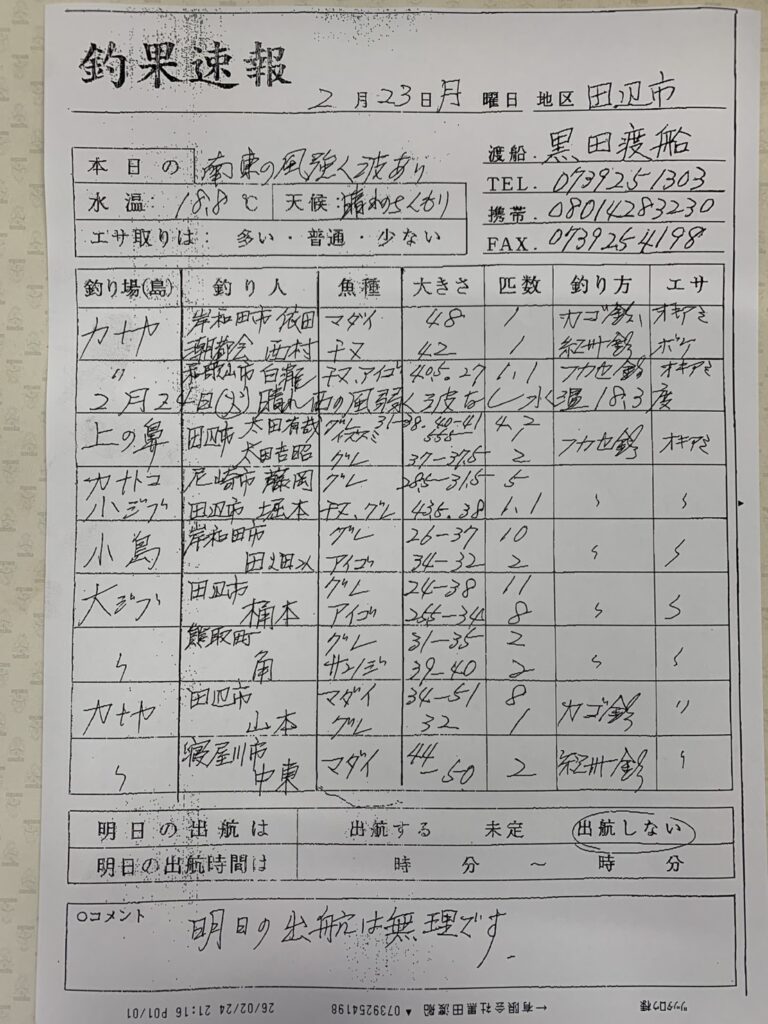 釣果速報
2月23日月曜日 地区 田辺市
本日の 南東の風強く波あり
渡船 黒田渡船
水温: 18.8℃ 天候: 晴れのちくもり
TEL. 0739251303
携帯. 08014283230
エサ取りは: 多い・普通・少ない
FAX. 0739254198
釣り場(島) 釣り人 魚種 大きさ 匹数 釣り方 エサ
カナヤ 岸和田市 依田 マダイ 48 1 カゴ釣 オキアミ
西村 チヌ 42 1 紀州釣 ボケ
〃 和歌山市 白龍 チヌ.アイゴ 40.5.27 1.1 フカセ釣 オキアミ
2月24日(火) 晴れ 西の風弱く波なし 水温18.3度
上の鼻 田辺市 太田有哉 グレ 31-38.40-41 4.2 フカセ釣 オキアミ
イズスミ 55.5
太田吉昭 グレ 37-37.5 2
カナトコ 尼崎市 藤岡 グレ 28.5-31.5 5
小ジブ 田辺市 堀本 チヌ.グレ 43.5.38 1.1 〃 〃
小島 岸和田市 グレ 26-37 10
アイゴ 34-32 2 〃 〃
大ジブ 田辺市 グレ 24-38 11
桶本 アイゴ 25.5-34 8 〃 〃
熊取町 グレ 31-35 2
〃 角 サンノジ 39-40 2 〃 〃
カナヤ 田辺市 マダイ 34-51 8 カゴ釣 〃
山本 グレ 32 1
〃 寝屋川市 中東 マダイ 44-50 2 紀州釣 〃
明日の出航は 出航する 未定 出航しない
明日の出航時間は 時 分 ～ 時 分
○コメント
明日の出航は無理です.
26/02/24 21:16 P01/01 ▲ 0739254198 ←有限会社黒田渡船